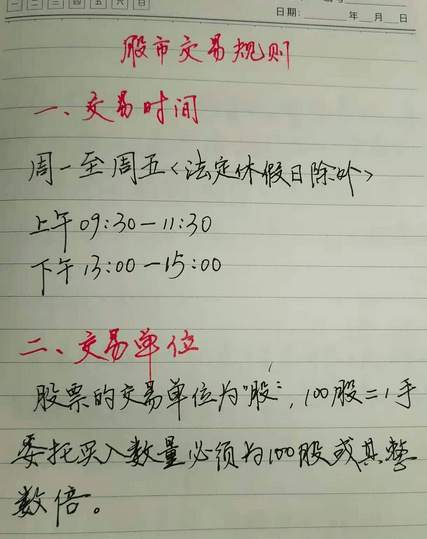 一 二 三 四 五 六 日
日期： 年 月 日
股市交易规则
一、交易时间
周一至周五<法定休假日除外>
上午09:30—11:30
下午13:00—15:00
二、交易单位
股票的交易单位为"股"，100股=1手
委托买入数量必须为100股或其整
数倍。